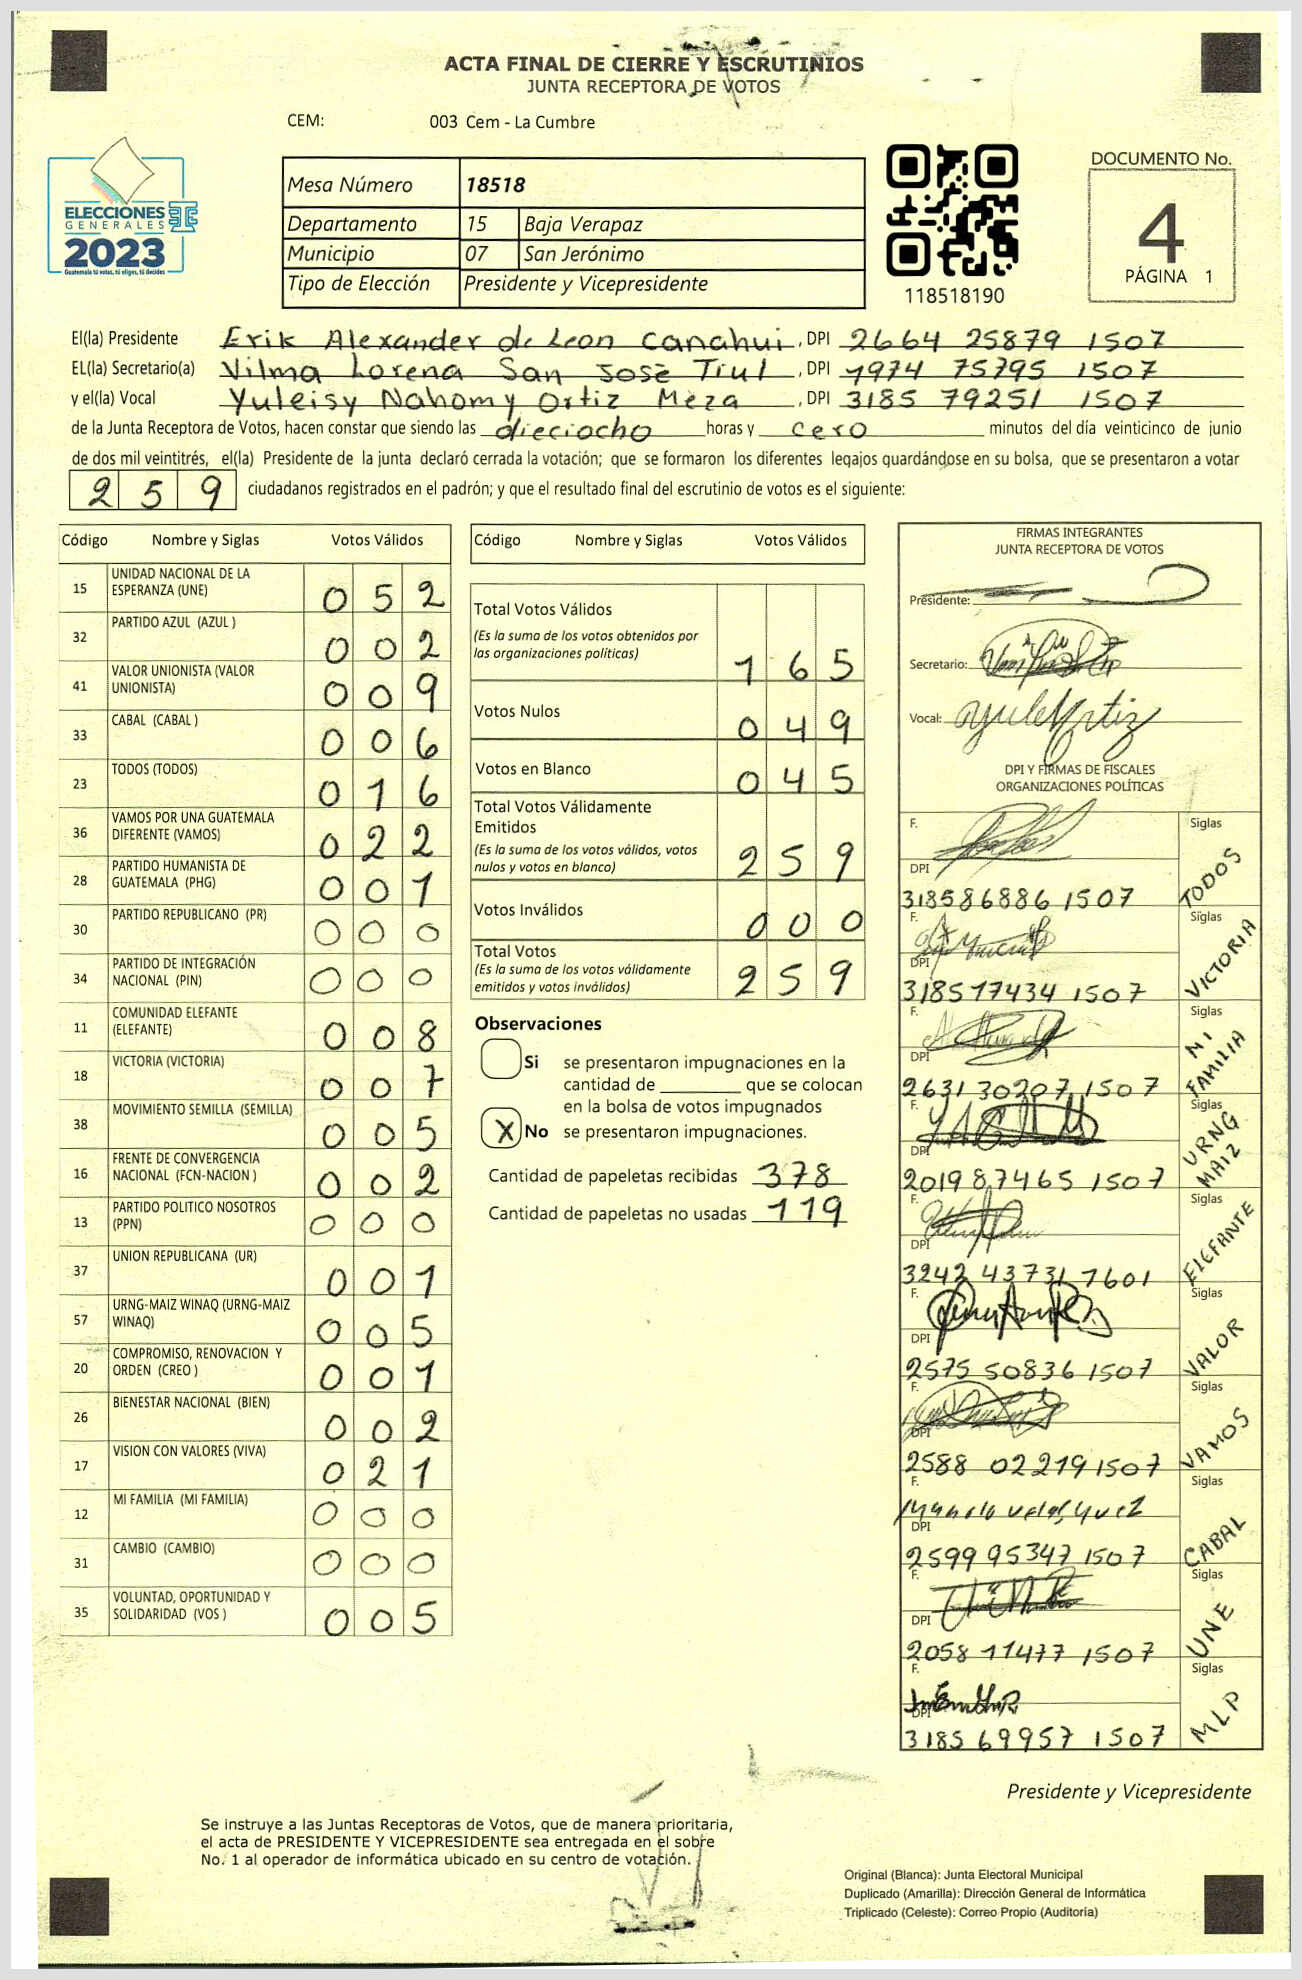 ACTA FINAL DE CIERRE Y ESCRUTINIOS
JUNTA RECEPTORA DE VOTOS
CEM: 003 Cem - La Cumbre
ELECCIONES
GENERALES
2023
Guatemala tú votas, tú eliges, tú decides
Mesa Número 18518
Departamento 15 Baja Verapaz
Municipio 07 San Jerónimo
Tipo de Elección Presidente y Vicepresidente
118518190
DOCUMENTO No.
4
PÁGINA 1
El(la) Presidente Erik Alexander de Leon Canahui, DPI 2664 25879 1507
EL(la) Secretario(a) Vilma Lorena San José Tiul, DPI 1974 75795 1507
y el(la) Vocal Yuleisy Nahomy Ortiz Meza, DPI 3185 79251 1507
de la Junta Receptora de Votos, hacen constar que siendo las dieciocho horas y cero minutos del día veinticinco de junio
de dos mil veintitrés, el(la) Presidente de la junta declaró cerrada la votación; que se formaron los diferentes legajos guardándose en su bolsa, que se presentaron a votar
259 ciudadanos registrados en el padrón; y que el resultado final del escrutinio de votos es el siguiente:
Código Nombre y Siglas Votos Válidos
15 UNIDAD NACIONAL DE LA ESPERANZA (UNE) 052
32 PARTIDO AZUL (AZUL ) 002
41 VALOR UNIONISTA (VALOR UNIONISTA) 009
33 CABAL (CABAL ) 006
23 TODOS (TODOS) 016
36 VAMOS POR UNA GUATEMALA DIFERENTE (VAMOS) 022
28 PARTIDO HUMANISTA DE GUATEMALA (PHG) 001
30 PARTIDO REPUBLICANO (PR) 000
34 PARTIDO DE INTEGRACIÓN NACIONAL (PIN) 000
11 COMUNIDAD ELEFANTE (ELEFANTE) 008
18 VICTORIA (VICTORIA) 007
38 MOVIMIENTO SEMILLA (SEMILLA) 005
16 FRENTE DE CONVERGENCIA NACIONAL (FCN-NACION ) 002
13 PARTIDO POLITICO NOSOTROS (PPN) 000
37 UNION REPUBLICANA (UR) 001
57 URNG-MAIZ WINAQ (URNG-MAIZ WINAQ) 005
20 COMPROMISO, RENOVACION Y ORDEN (CREO ) 001
26 BIENESTAR NACIONAL (BIEN) 002
17 VISION CON VALORES (VIVA) 021
12 MI FAMILIA (MI FAMILIA) 000
31 CAMBIO (CAMBIO) 000
35 VOLUNTAD, OPORTUNIDAD Y SOLIDARIDAD (VOS ) 005
Código Nombre y Siglas Votos Válidos
Total Votos Válidos
(Es la suma de los votos obtenidos por
las organizaciones políticas) 165
Votos Nulos 049
Votos en Blanco 045
Total Votos Válidamente
Emitidos
(Es la suma de los votos válidos, votos
nulos y votos en blanco) 259
Votos Inválidos 000
Total Votos
(Es la suma de los votos válidamente
emitidos y votos inválidos) 259
Observaciones
Si se presentaron impugnaciones en la
cantidad de ________ que se colocan
en la bolsa de votos impugnados
X No se presentaron impugnaciones.
Cantidad de papeletas recibidas 378
Cantidad de papeletas no usadas 119
FIRMAS INTEGRANTES
JUNTA RECEPTORA DE VOTOS
Presidente:
Secretario:
Vocal: Yule Ortiz
DPI Y FIRMAS DE FISCALES
ORGANIZACIONES POLÍTICAS
F. Siglas
DPI 318586886 1507 TODOS
F. Siglas
DPI 318517434 1507 VICTORIA
F. Siglas
DPI 2631 30207 1507 MI FAMILIA
F. Siglas
DPI 2019 87465 1507 URNG MAIZ
F. Siglas
DPI 3242 43731 1601 ElEFANTE
F. Siglas
DPI 2575 50836 1507 VALOR
F. Siglas
DPI 2588 02219 1507 VAMOS
F. Siglas
DPI 2599 95347 1507 CABAL
F. Siglas
DPI 2058 11477 1507 UNE
F. Siglas
DPI 3185 69957 1507 MLP
Presidente y Vicepresidente
Se instruye a las Juntas Receptoras de Votos, que de manera prioritaria,
el acta de PRESIDENTE Y VICEPRESIDENTE sea entregada en el sobre
No. 1 al operador de informática ubicado en su centro de votación.
Original (Blanca): Junta Electoral Municipal
Duplicado (Amarilla): Dirección General de Informática
Triplicado (Celeste): Correo Propio (Auditoría)